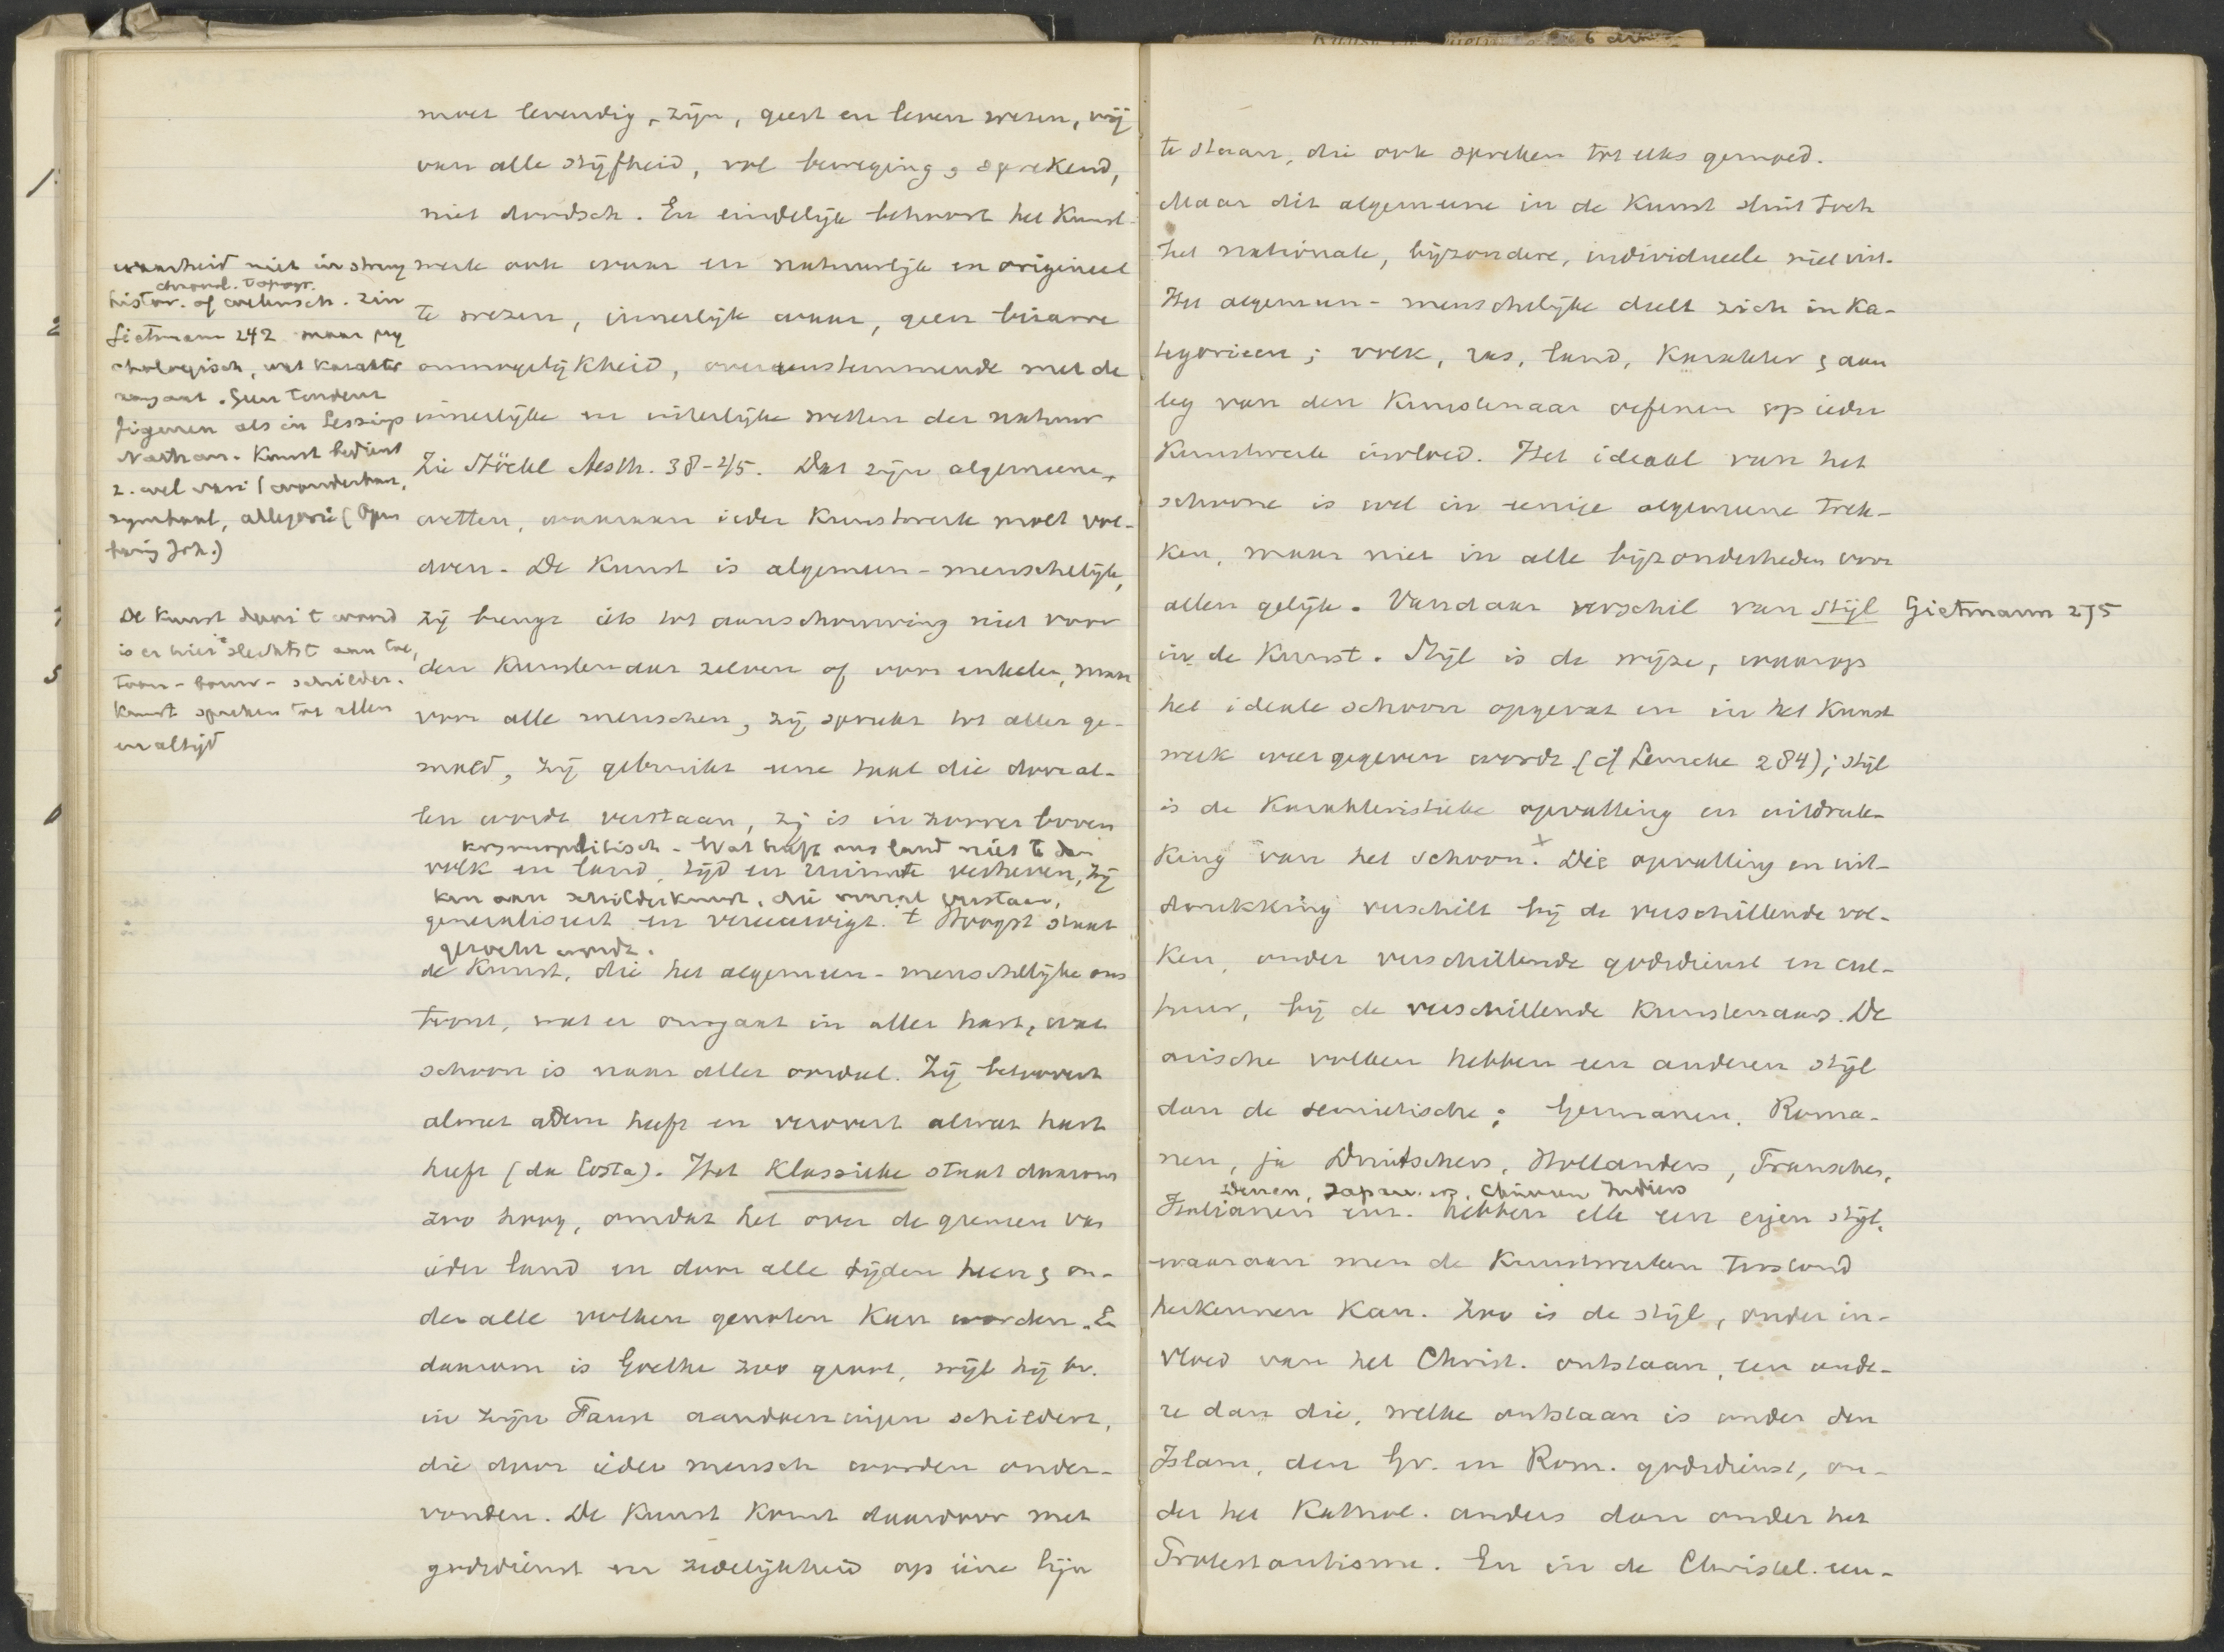 moet levendig zijn, geest en leven wezen, vrij
van alle stijfheid, vol beweging, sprekend,
niet doodsch. En eindelijk behoort het Kunst-
werk ook waar en natuurlijk en origineel
te wezen, innerlijk waar, geen bizarre
onmogelijkheid, overeenstemmende met de
innerlijke en uiterlijke wetten der natuur
Zie Stöckl Aesth. 38-45. Dat zijn algemeene
wetten, waaraan ieder Kunstwerk moet vol-
doen. De Kunst is algemeen-menschelijk,
zij brengt iets tot aanschouwing niet voor
den Kunstenaar zelven of voor enkelen, maar
voor alle menschen, zij spreekt tot aller ge-
moed, zij gebruikt eene taal die door al-
len wordt verstaan, zij is in zoover boven
kosmopolitisch - Wat heeft ons land niet te dan-
volk en land, tijd en ruimte verheven, zij
ken aan schilderkunst, die overal verstaan,
generaliseert en vereeuwigt. t Hoogst staat
gezocht wordt.
de Kunst, die het algemeen-menschelijke ons
toont, wat er omgaat in aller hart, wat
schoon is naar aller oordeel. Zij betoovert
alwat adem heeft en verovert alwat hart
heeft (da Costa). Het Klassieke staat daarom
zoo hoog, omdat het over de grenzen van
ieder land en door alle tijden heen en on-
der alle volken genoten Kan worden. En
daarom is Goethe zoo groot, wijl hij bv.
in zijn Faust aandoeningen schildert,
die door ieder mensch worden onder-
vonden. De Kunst Komt daardoor met
godsdienst en zedelijkheid op eene lijn
waarheid niet in streng
chronol. topogr.
histor. of wetensch. zin
Gietmann 242 maar psy
chologisch, wat Karakter
aangaat. Geen tendenz
figuren als in Lessings
Nathan. Kunst bedient
z. wel van (wonderbaar,
symbool, allegorie (Open
baring Joh.)
De Kunst door t woord
is er hier slechtst aan toe,
toon- bouw- schilder-
kunst spreken tot allen
en altijd
te staan, die ook spreken tot elks gemoed.
Maar dit algemeene in de Kunst sluit toch
het nationale, bijzondere, individueele niet uit.
Het algemeen-menschelijke deelt zich in Ka-
tegorieen; volk, ras, land, Karakter en aan
leg van den Kunstenaar oefenen op ieder
Kunstwerk invloed. Het ideaal van het
schoone is wel in eenige algemeene trek-
Ken, maar niet in alle bijzonderheden voor
allen gelijk. Vandaar verschil van Stijl Gietmann 275
in de Kunst. Stijl is de wijze, waarop
het ideale schoon opgevat en in het Kunst
werk weergegeven wordt (cf Lemcke 284); Stijl
is de Karakteristieke opvatting en uitdruk-
King van het schoon. Die opvatting en uit-
drukking verschilt bij de verschillende vol-
Ken, onder verschillende godsdienst en cul-
tuur, bij de verschillende Kunstenaars. De
arische volken hebben een anderen stijl
dan de semietische; Germanen, Roma-
nen, ja Duitschers, Hollanders, Franschen,
Denen, Japaners, Chinezen Indiers
Italianen enz. hebben elk een eigen stijl,
waaraan men de Kunstwerken terstond
herkennen Kan. Zoo is de stijl, onder in-
vloed van het Christ. ontstaan, een ande-
re dan die, welke ontstaan is onder den
Islam, den Gr. en Rom. godsdienst, on-
der het Kathol. anders dan onder het
Protestantisme. En in de Christel. eeu-